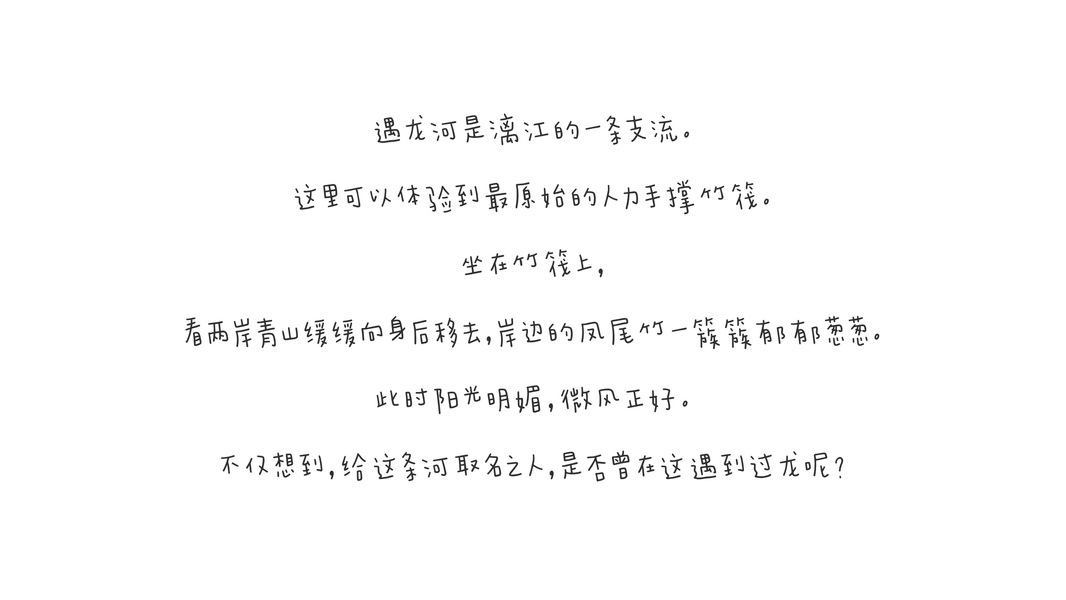 遇龙河是漓江的一条支流。
这里可以体验到最原始的人力手撑竹筏。
坐在竹筏上,
看两岸青山缓缓向身后移去,岸边的凤尾竹一簇簇郁郁葱葱。
此时阳光明媚,微风正好。
不仅想到,给这条河取名之人,是否曾在这遇到过龙呢?